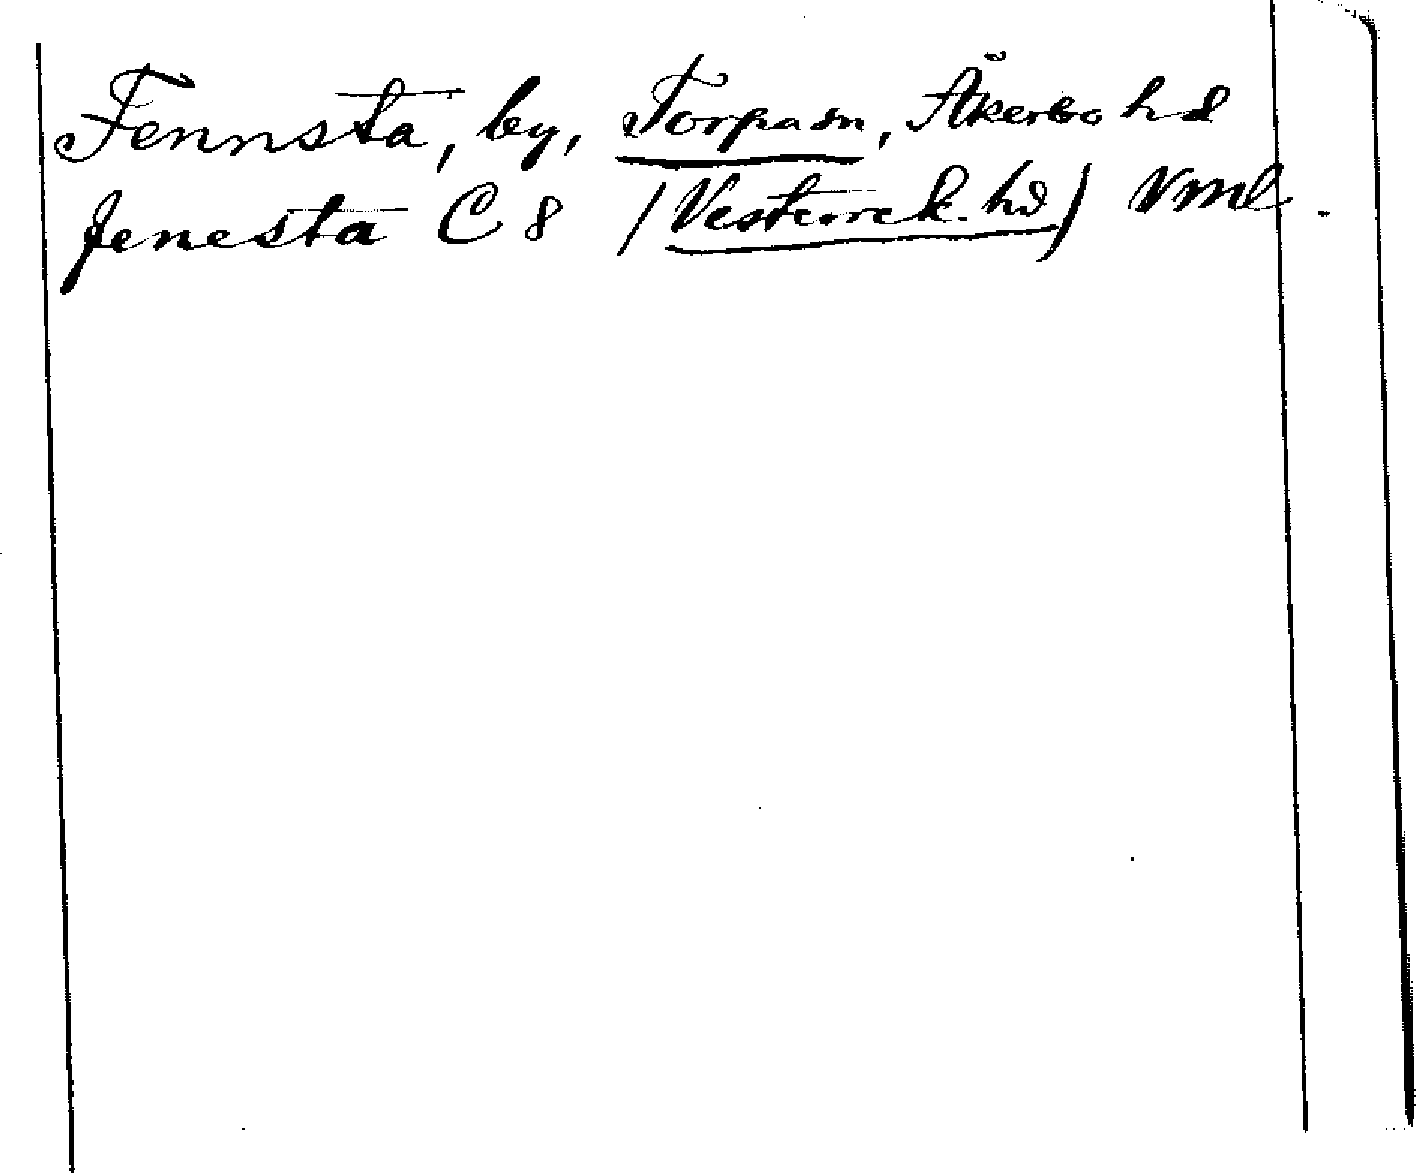 Fennsta, by, Torpa sn, Åkerbo hd
fenesta C 8 (Vesterrek. hd) Vml.